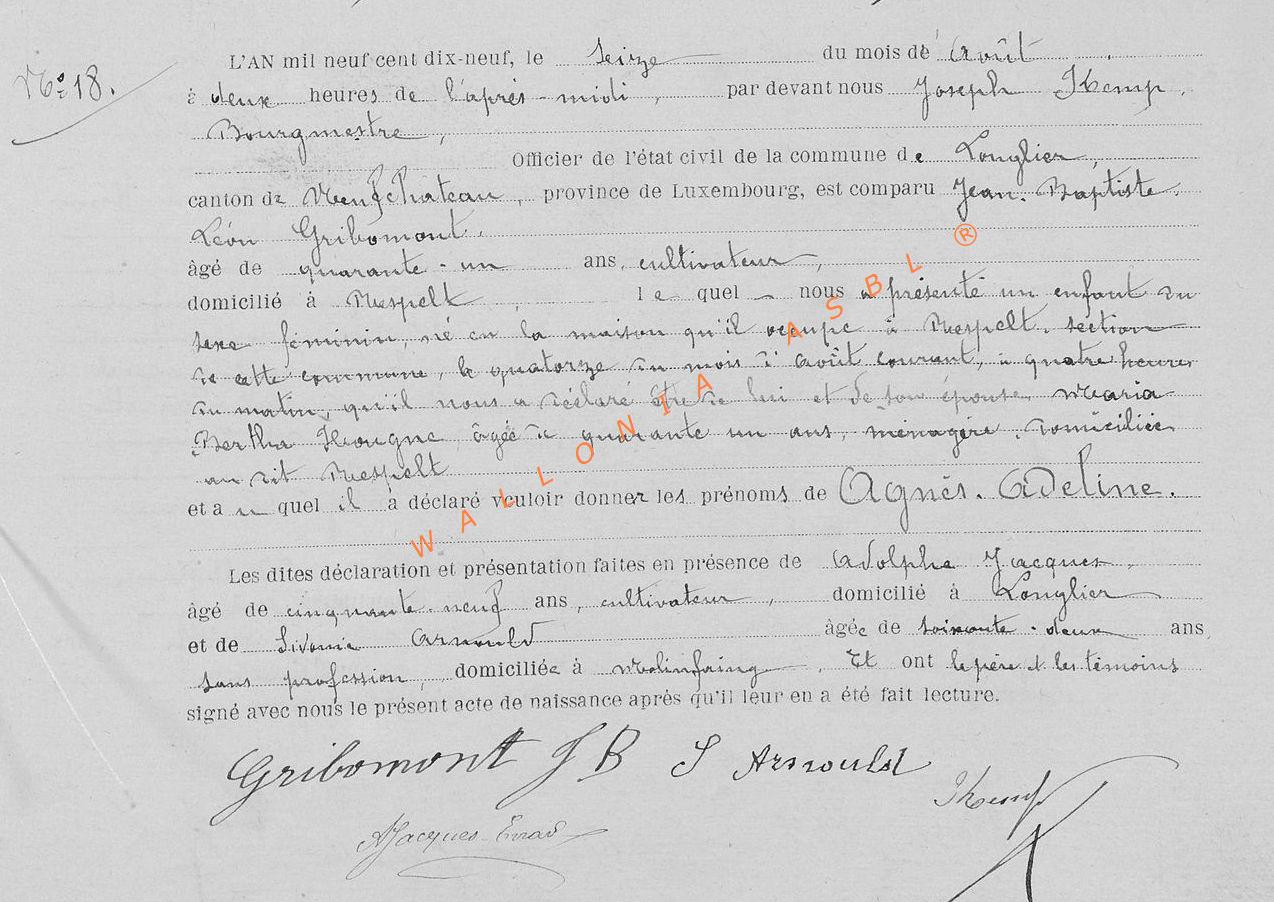 No 18.
L'AN mil neuf cent dix-neuf, le seize du mois de Août
à deux heures de l'après-midi, par devant nous Joseph Kemp,
Bourgmestre,
Officier de l'état civil de la commune de Longlier,
canton de Neufchateau, province de Luxembourg, est comparu Jean-Baptiste
Léon Gribomont.
âgé de quarante-un ans, cultivateur,
domicilié à Respelt le quel nous a présenté un enfant du
sexe féminin, né en la maison qu'il occupe à Respelt, section
de cette commune, le quatorze du mois d'août courant, à quatre heures
du matin, qu'il nous a déclaré être de lui et de son épouse Maria
Bertha, âgée de quarante un ans, ménagère, domiciliée
au dit Respelt
et a u quel il à déclaré vouloir donner les prénoms de Agnès. Adeline.
Les dites déclaration et présentation faites en présence de Adolphe Jacques,
âgé de cinquante-neuf ans, cultivateur, domicilié à Longlier
et de Sidonie Arnould âgée de soixante-deux ans,
sans profession, domiciliée à Molinfaing. Et ont le père et les témoins
signé avec nous le présent acte de naissance après qu'il leur en a été fait lecture.
Gribomont J B S Arnould
Kemp
A Jacques-Evrad
WALLONIA ASBL ®